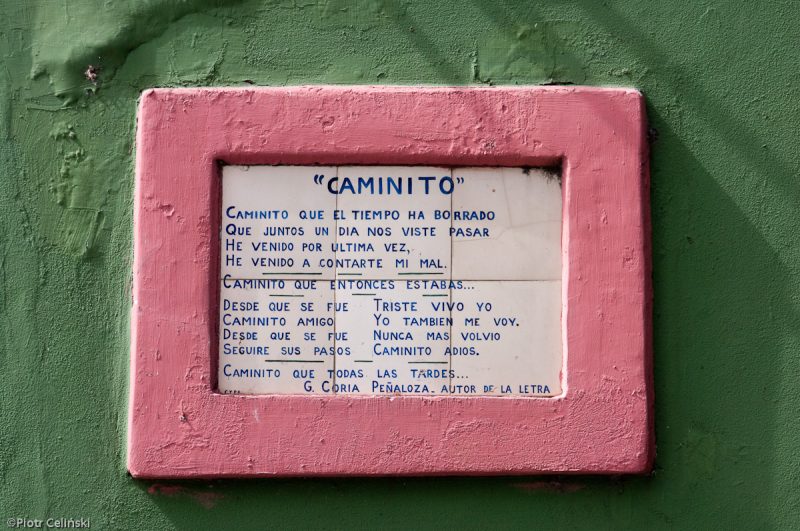 "CAMINITO"
CAMINITO QUE EL TIEMPO HA BORRADO
QUE JUNTOS UN DIA NOS VISTE PASAR
HE VENIDO POR ULTIMA VEZ,
HE VENIDO A CONTARTE MI MAL.
CAMINITO QUE ENTONCES ESTABAS...
DESDE QUE SE FUE TRISTE VIVO YO
CAMINITO AMIGO YO TAMBIEN ME VOY.
DESDE QUE SE FUE NUNCA MAS VOLVIO
SEGUIRE SUS PASOS CAMINITO ADIOS.
CAMINITO QUE TODAS LAS TARDES...
G. CORIA PEÑALOZA. AUTOR DE LA LETRA
©Piotr Celiński